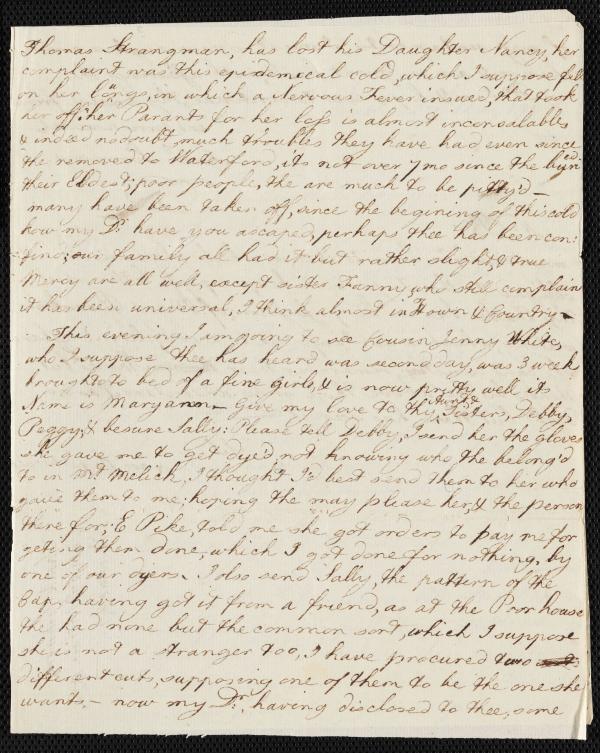 Thomas Strangman, has lost his Daughter Nancy, her
complaint was this epidemical cold, which I suppose fell
on her lungs, in which a Nervous Fever insued, that took
her off; her Parants for her loss is almost inconsalable,
& indeed no doubt, much troubles they have had even since
the removed to Waterford, its not over 7 mo since the buri'd
their Eldest; poor people, the are much to be pitty'd —
many have been taken off, since the begining of this cold
how my Dr. have you ascaped, perhaps thee has been con:
fine; our family all had it but rather slight, & true
Mercy are all well, except sister Fanny who still complain
it has been universal, I think almost in town & Country —
This evening I am going to see Cousin Jenny White,
who I suppose thee has heard was second day, was 3 week
brought to bed of a fine girls, & is now pritty well its
Name is Maryann — Give my love to thy Aunt & Sisters, Debby,
Peggy, & besure Sally: Please tell Debby, I send her the gloves
she gave me to get dyed, not knowing who the belong'd
to in Mt. Melick, I thought I'd best send them to her who
gave them to me, hoping the may please her, & the person
there for; E Pike, told me she got orders to pay me for
geting them done, which I got done for nothing, by
one of our dyers. I also send Sally, the pattern of the
Cap, having got it from a friend, as at the Poor house
the had none but the common sort, which I suppose
she is not a stranger too, I have procured two
different cuts, supposing one of them to be the one she
wants, — now my Dr. having disclosed to thee, some